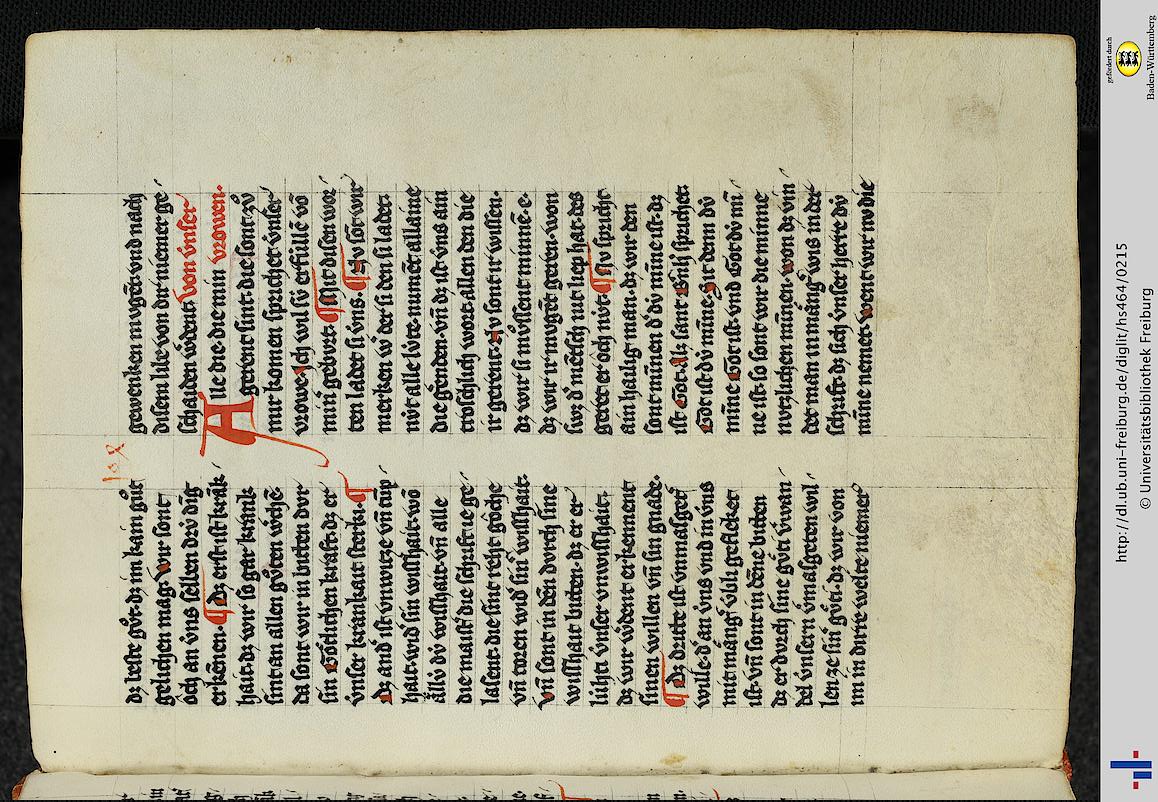 dz beste gůt. dz im kain gůt
gelichen mag. wir sont
och an v́ns sellen drv́ dīg
erkēnen. ¶ Dz erst ist krāk
hait. dz wir so gar krank
sint an allen gůten wˢche.
da sont wir in bitten dvr
sin götlichen kraft. dz er
v́nser krankait sterki. ¶
Dz and̓ ist
hait. wid̓ sin wishait. wō
ällv́ dv́ wishait. vn̄ alle
die maisť die schrift ie ge
lasent. die sint reht
vn̄ toren wid̓ sin̓ wishait.
vn̄ sont in dēn dvrch sine
wishait bitten. dz er er
lv́hti v́nser vnwishait.
dz wir w̓dent erkennent
sinen willen vn̄ sin gnade.
¶ Dz dritte ist vnmäsger
wille. d̓ an v́ns vnd in v́ns
mit mäng̓ v́bli geflecket
ist. vn̄ sont in dēne bitten
dz er dvrch sine gv̊ti v̓wan
del v́nsern v́nmäsgeten wil
len ze sin̓ gv̊ti. dz wir von
im in dirre welte niemer
gewenken mvgēt vnd nach
disem libe von dir niemer ge
schaiden w̓dent. Von vnser
vrowen.
Alle die. die min
gerent sint. die sont zv̊
mir komen sprichet v́nser
vrowe. Ich wil sí erfv́llē vō
min̓ gebvrt. ¶ Mit disen wor
ten ladet si v́ns. ¶ Nv sōt wir
merken w̓ der si den si ladet.
nv́t alle lv́te. nvmēt allaine
die gˢnden. vn̄ dz ist v́ns ain
trōschlich wort. allen den die
ir gerent. Nv sont ir wissen.
dz wir si mv̊ssent minnē. e.
dz wir ir mvgēt geren. won
swz d̓ mētsch nit liep hat. des
geret er och nv́t. ¶ Nv spricht
ain hailig man. dz wir den
sont minen. d̓ dv́ mine ist. dz
ist Got. Als sant Paulˢ sprichet.
Got ist dv́ mine. Sit denn dv́
mine Got ist. vnd Got dv́ mi
ne ist. so sont wir die minne
nvtzlichen minen. won dz vin
det man in mäng̓ wis in der
schrift. dz sich v́nser herre dv́
mine nemet. went wir nv die
http://dl.ub.uni-freiburg.de/diglit/hs464/0215
© Universitätsbibliothek Freiburg
gefördert durch
Baden-Württemberg